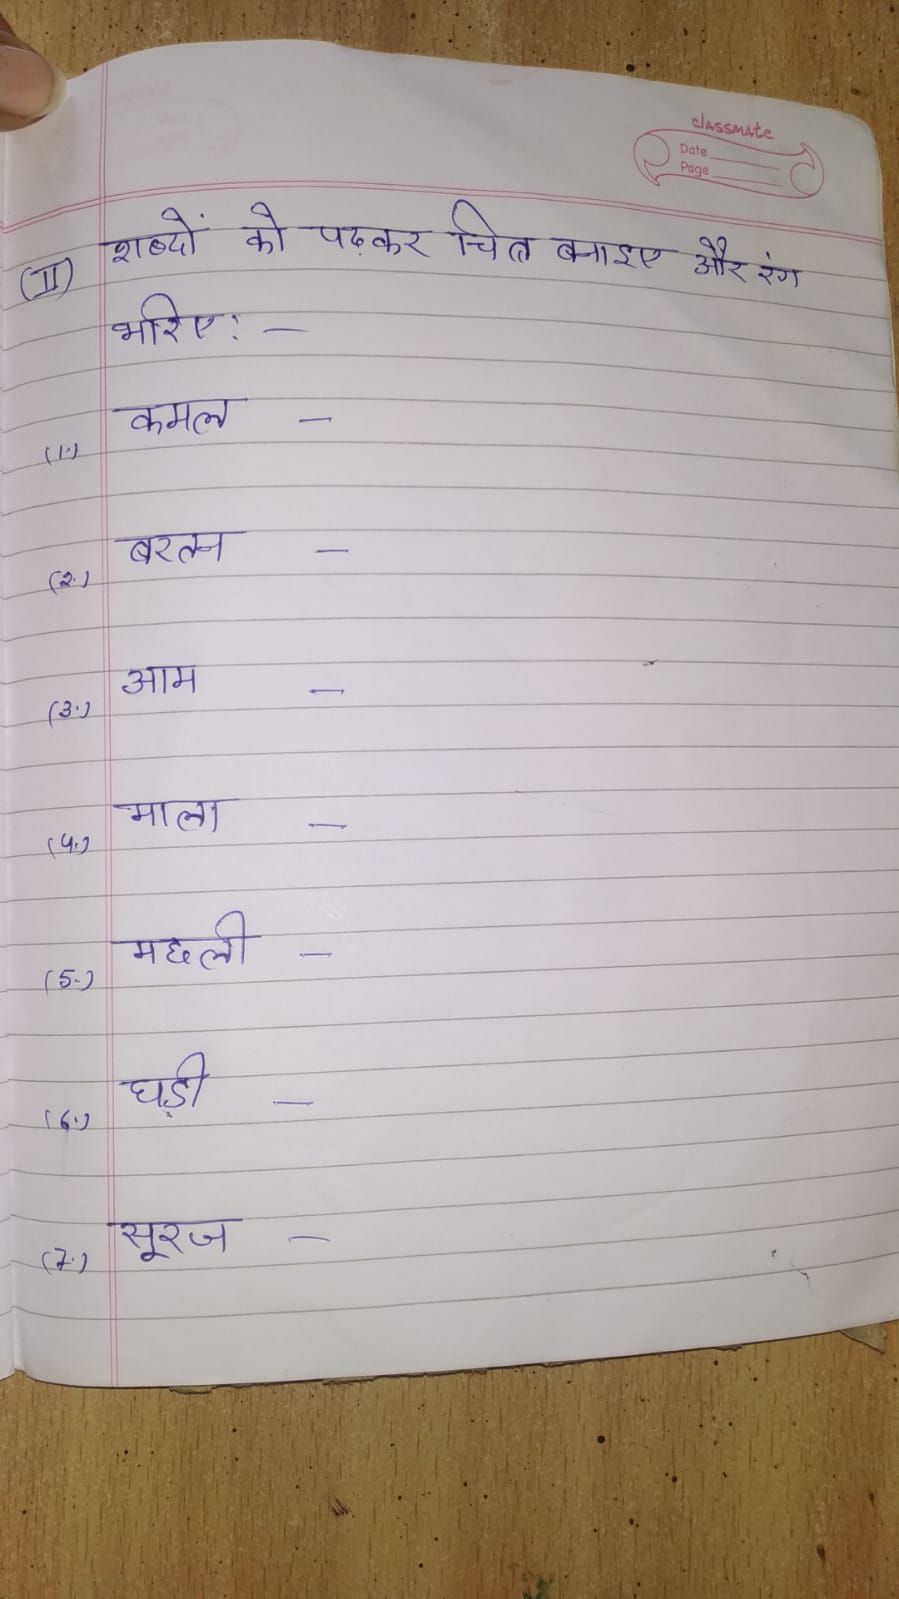 classmate
Date
Page
(II) शब्दों को पढ़कर चित्र बनाइए और रंग
भरिए : —
(1.) कमल —
(2.) बरतन —
(3.) आम —
(4.) माला —
(5.) मछली —
(6.) घड़ी —
(7.) सूरज —